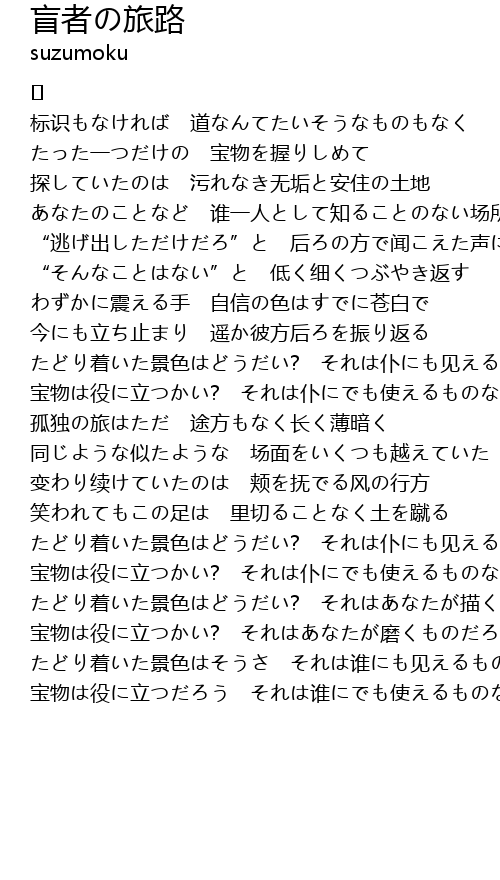 盲者の旅路
suzumoku
标识もなければ　道なんてたいそうなものもなく
たった一つだけの　宝物を握りしめて
探していたのは　污れなき无垢と安住の土地
あなたのことなど　谁一人として知ることのない场所
“逃げ出しただけだろ”と　后ろの方で闻こえた声に
“そんなことはない”と　低く细くつぶやき返す
わずかに震える手　自信の色はすでに苍白で
今にも立ち止まり　遥か彼方后ろを振り返る
たどり着いた景色はどうだい?　それは仆にも见える
宝物は役に立つかい?　それは仆にでも使えるものな
孤独の旅はただ　途方もなく长く薄暗く
同じような似たような　场面をいくつも越えていた
变わり续けていたのは　颊を抚でる风の行方
笑われてもこの足は　里切ることなく土を蹴る
たどり着いた景色はどうだい?　それは仆にも见える
宝物は役に立つかい?　それは仆にでも使えるものな
たどり着いた景色はどうだい?　それはあなたが描く
宝物は役に立つかい?　それはあなたが磨くものだろ
たどり着いた景色はそうさ　それは谁にも见えるもの
宝物は役に立つだろう　それは谁にでも使えるものな